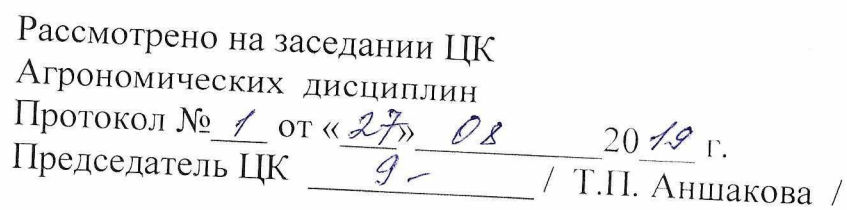 Рассмотрено на заседании ЦК
Агрономических дисциплин
Протокол № 1 от «27» 08 2019 г.
Председатель ЦК / Т.П. Аншакова /